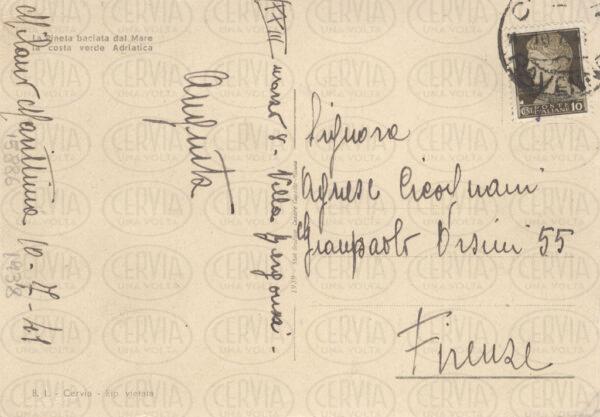 La Pineta baciata dal Mare
la costa verde Adriatica
Milano Marittima 10-7-41
15886
1938
Augusta
XXIII
marzo 8 - Villa
Signora
Agnese Cicognani
Gianpaolo Orsini 55
Firenze
POSTE ITALIANE 10
B. L. - Cervia - Rip. vietata
CERVIA
UNA VOLTA